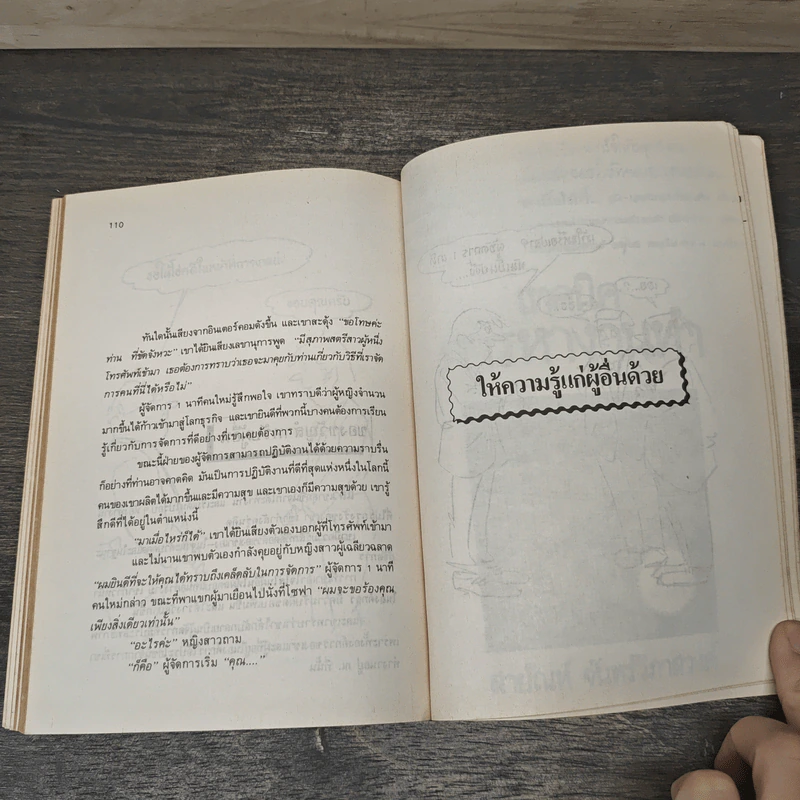 110
ทันใดนั้นเสียงจากอินเตอร์คอมดังขึ้น และเขาสะดุ้ง "ขอโทษค่ะ
ท่าน ที่ขัดจังหวะ" เขาได้ยินเสียงเลขานุการพูด "มีสุภาพสตรีสาวผู้หนึ่ง
โทรศัพท์เข้ามา เธอต้องการทราบว่าเธอจะมาคุยกับท่านเกี่ยวกับวิธีที่เราจัด
การคนที่นี่ได้หรือไม่"
ผู้จัดการ 1 นาทีคนใหม่รู้สึกพอใจ เขาทราบดีว่าผู้หญิงจำนวน
มากขึ้นได้ก้าวเข้ามาสู่โลกธุรกิจ และเขายินดีที่พวกนี้บางคนต้องการเรียน
รู้เกี่ยวกับการจัดการที่ดีอย่างที่เขาเคยต้องการ
ขณะนี้ฝ่ายของผู้จัดการสามารถปฏิบัติงานได้ด้วยความราบรื่น
ก็อย่างที่ท่านอาจคาดคิด มันเป็นการปฏิบัติงานที่ดีที่สุดแห่งหนึ่งในโลกนี้
คนของเขาผลิตได้มากขึ้นและมีความสุข และเขาเองก็มีความสุขด้วย เขารู้
สึกดีที่ได้อยู่ในตำแหน่งนี้
"มาเมื่อไหร่ก็ได้" เขาได้ยินเสียงตัวเองบอกผู้ที่โทรศัพท์เข้ามา
และไม่นานเขาพบตัวเองกำลังคุยอยู่กับหญิงสาวผู้เฉลียวฉลาด
"ผมยินดีที่จะให้คุณได้ทราบถึงเคล็ดลับในการจัดการ" ผู้จัดการ 1 นาที
คนใหม่กล่าว ขณะที่พาแขกผู้มาเยือนไปนั่งที่โซฟา "ผมจะขอร้องคุณ
เพียงสิ่งเดียวเท่านั้น"
"อะไรค่ะ" หญิงสาวถาม
"ก็คือ" ผู้จัดการเริ่ม "คุณ...."
ให้ความรู้แก่ผู้อื่นด้วย